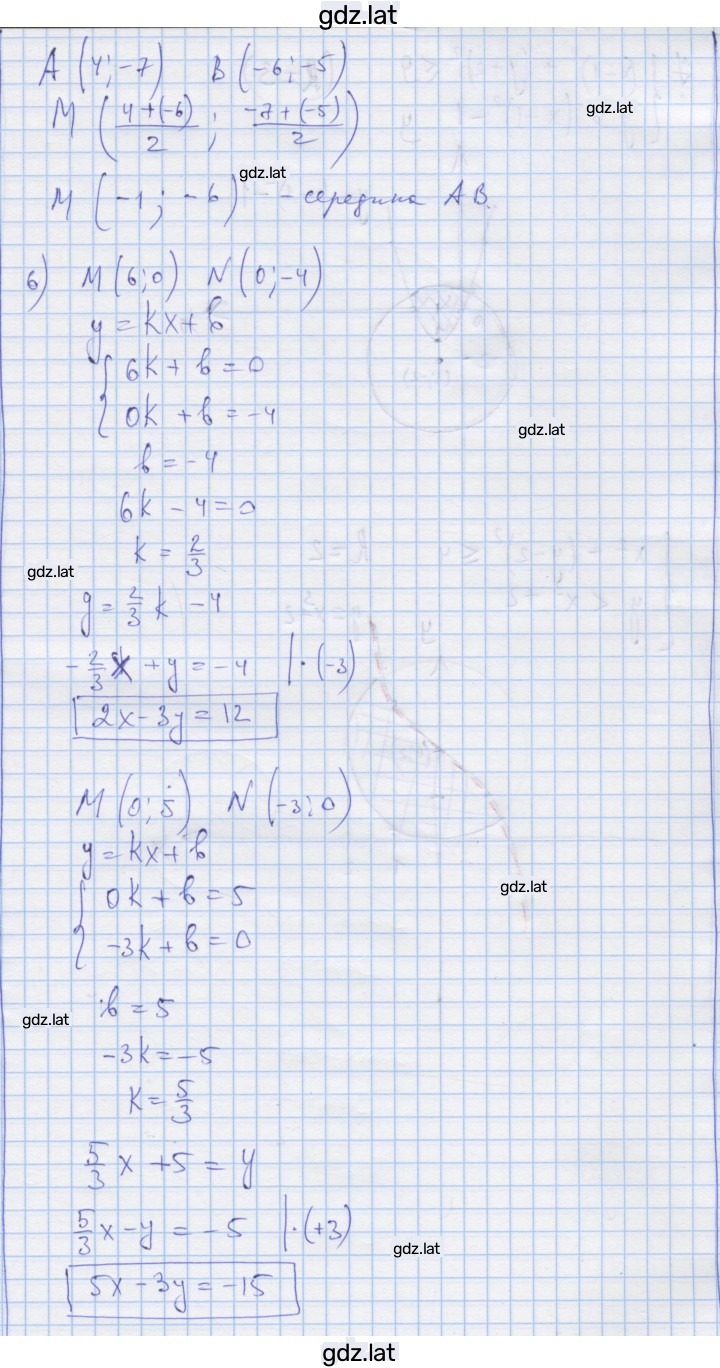 gdz.lat
A (4; -7) B (-6; -5)
gdz.lat
M (4+(-6)/2 ; -7+(-5)/2)
gdz.lat
M (-1; -6) - середина AB.
б) M (6; 0) N (0; -4)
y = kx + b
{ 6k + b = 0
0k + b = -4
gdz.lat
b = -4
6k - 4 = 0
k = 2/3
gdz.lat
y = 2/3 k - 4
-2/3 x + y = -4 | · (-3)
2x - 3y = 12
M (0; 5) N (-3; 0)
y = kx + b
{ 0k + b = 5
gdz.lat
-3k + b = 0
b = 5
gdz.lat
-3k = -5
k = 5/3
5/3 x + 5 = y
5/3 x - y = -5 | · (+3)
gdz.lat
5x - 3y = -15
gdz.lat